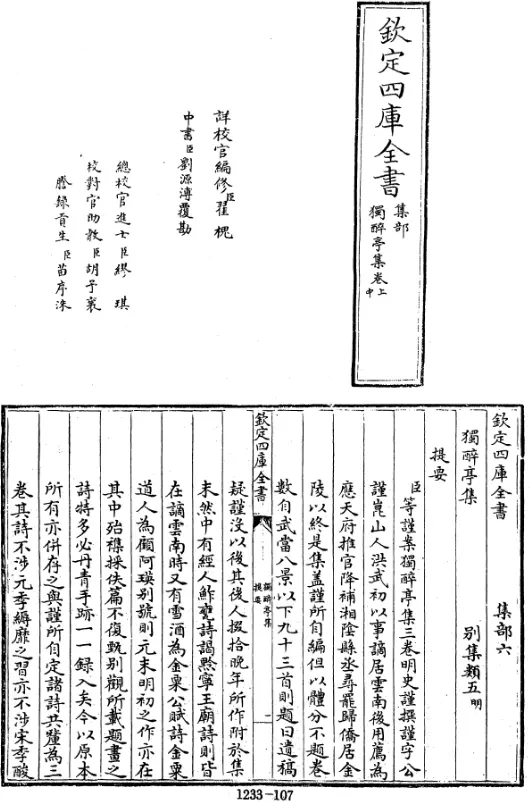 欽定四庫全書
集部
獨醉亭集卷上
中
詳校官編修臣翟槐
中書臣劉源溥覆勘
總校官進士臣繆琪
校對官助教臣胡予襄
謄錄貢生臣苗序洙
欽定四庫全書
集部六
獨醉亭集
別集類五明
提要
臣等謹案獨醉亭集三卷明史謹撰謹字公
謹崑山人洪武初以事謫居雲南後用薦為
應天府推官降補湘陰縣丞尋罷歸僑居金
陵以終是集盖謹所自編但以體分不題卷
數自武當八景以下九十三首則題曰遺稿
欽定四庫全書
獨醉亭集
提要
一
疑謹没以後其後人掇拾晚年所作附於集
末然中有經人鮓甕詩謁黙寧王廟詩則皆
在謫雲南時又有雪酒為金粟公賦詩金粟
道人為顧阿瑛别號則元末明初之作亦在
其中殆襍採佚篇不復甄别觀所載題畫之
詩特多必丹青手跡一一録入矣今以原本
所有亦併存之與謹所自定諸詩共釐為三
卷其詩不涉元季縟靡之習亦不涉宋季酸
1233-107